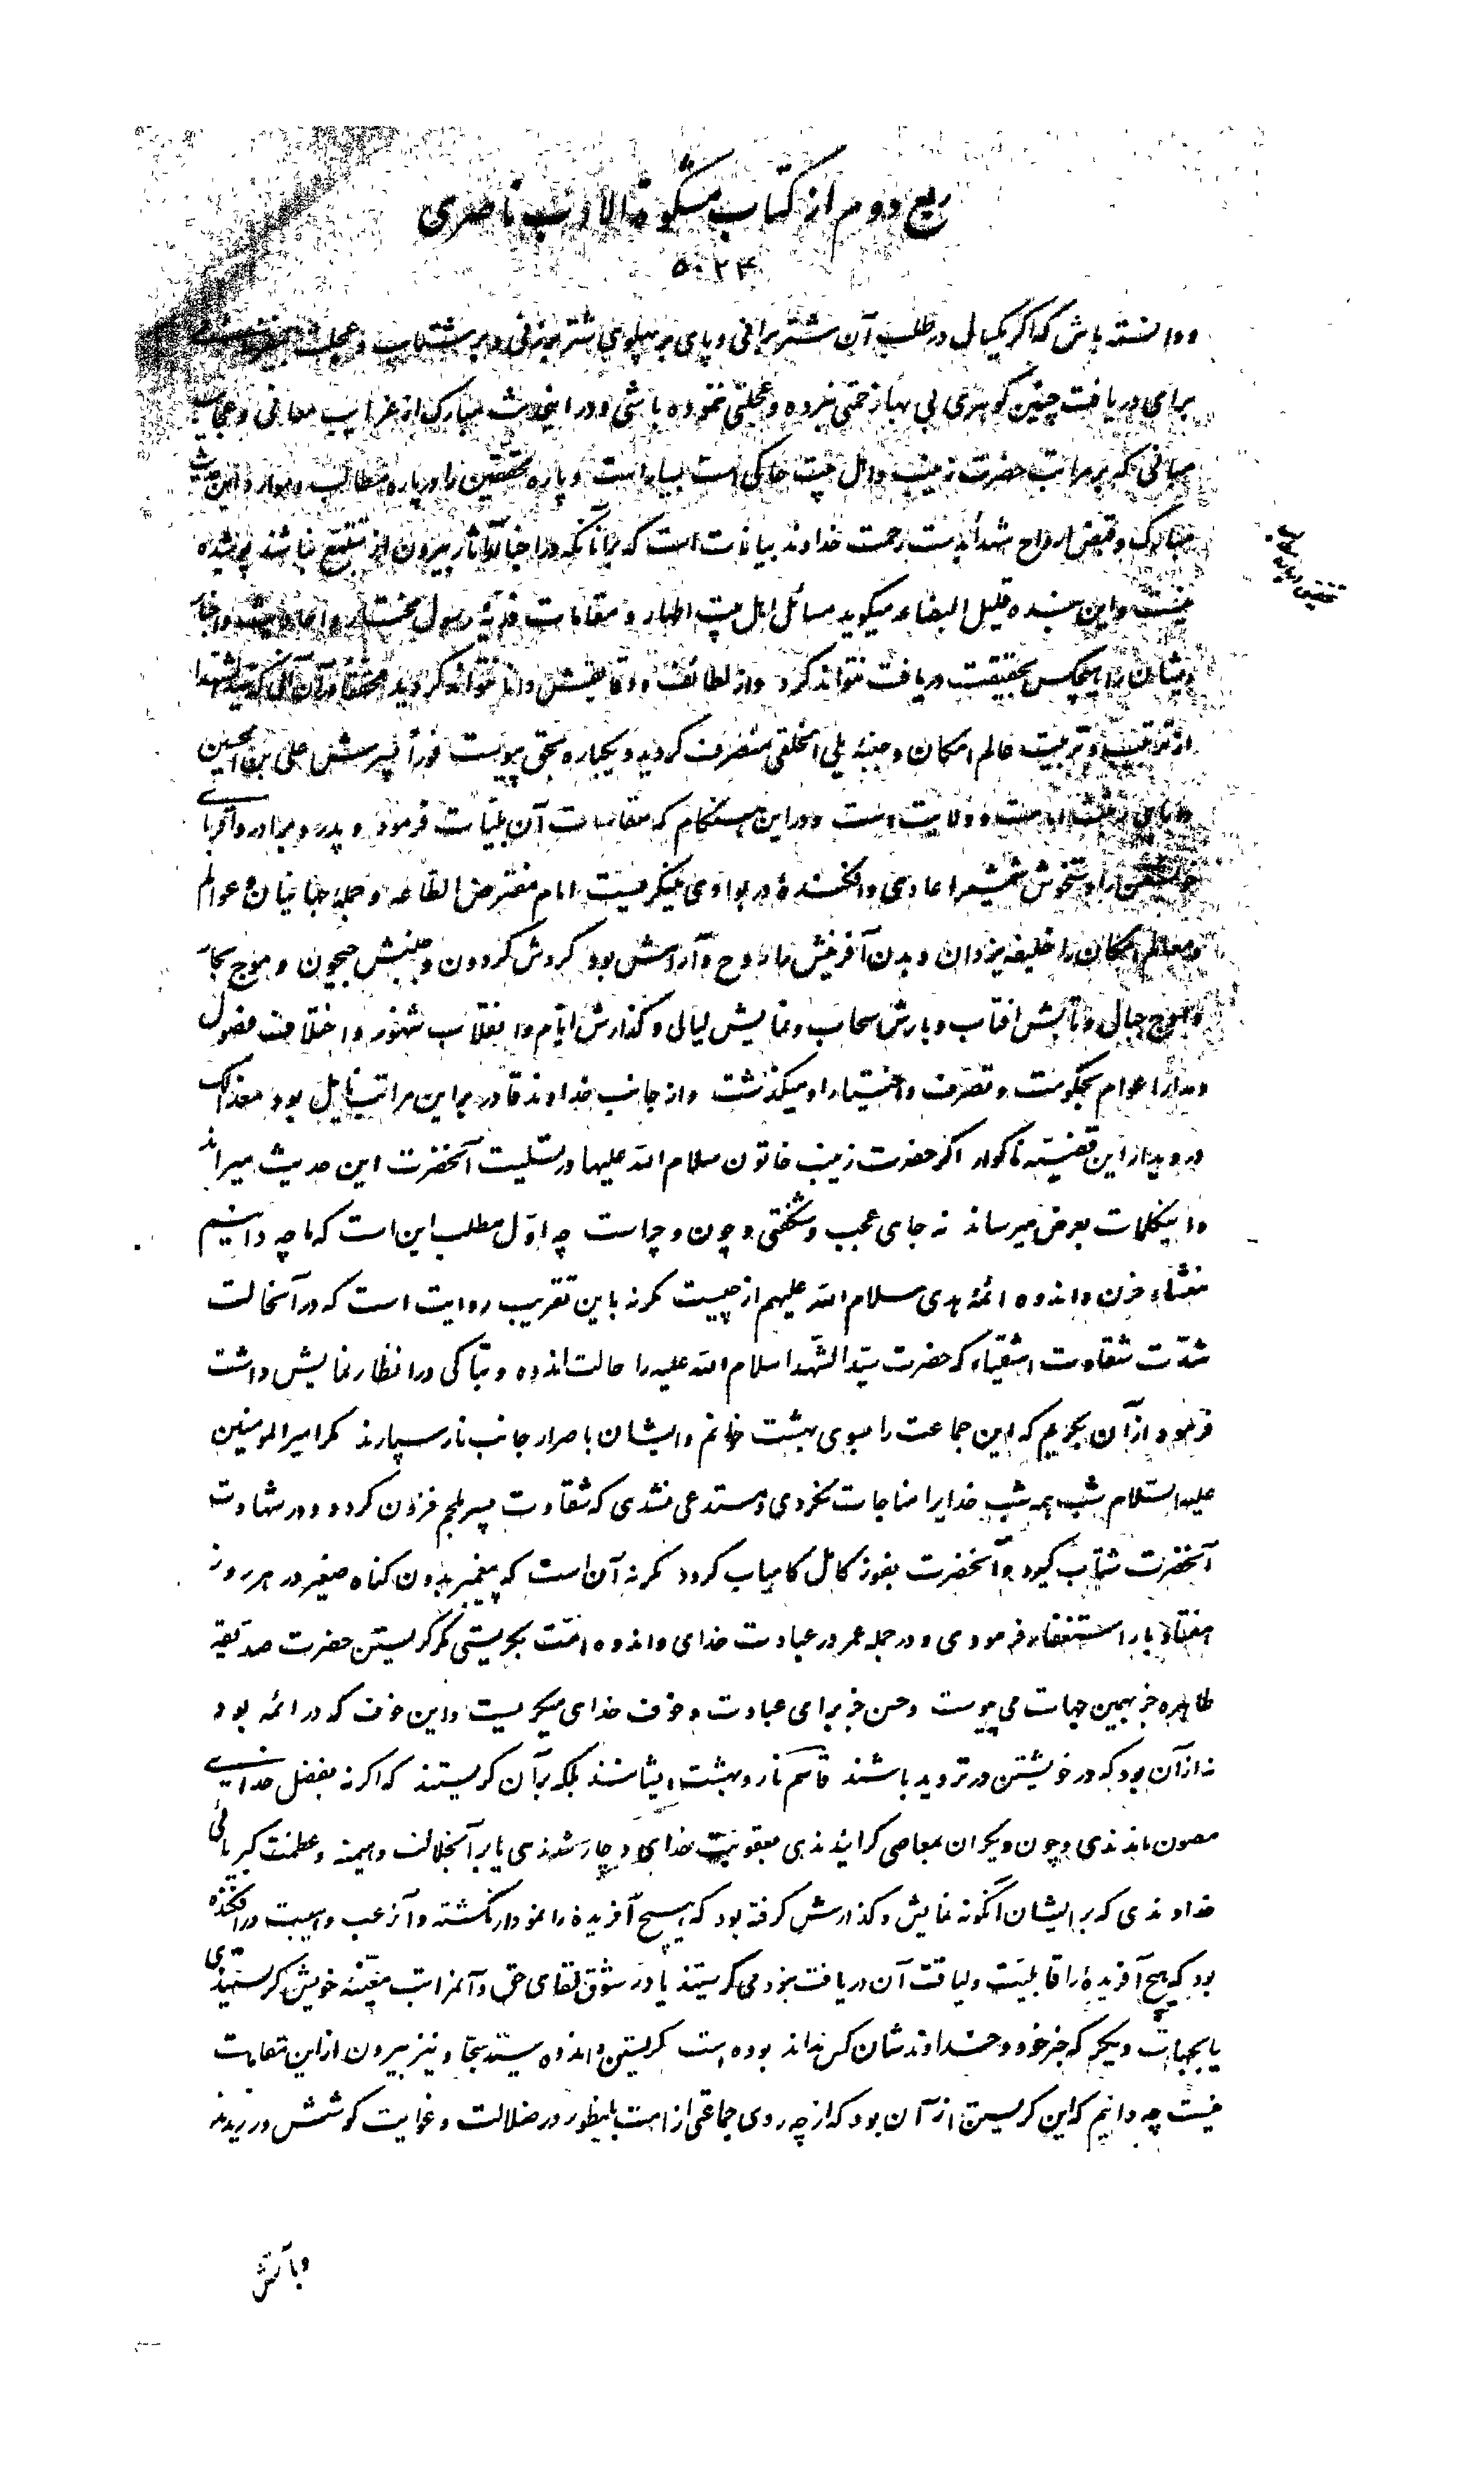 ربع دوم از کتاب مشکوة الادب ناصری
۵۰۲۴
و دانسته باش که اگر یکسال در طلب آن شتر برانی و پای بر پهلوی شتر بزنی و بر شتاب و عجلت
برای دریافت چنین گوهری بی بها زحمتی نبرده و عجلتی ننموده باشی و در اینحدیث مبارک از غرایب معانی و عجایب
مبانی که بر مراتب حضرت زینب و اهل بیت حاکی است بسیار است و پاره محققین را در پاره مطالب و موارد این حدیث
مبارک و قبض ارواح شهدا بدست رحمت خداوند بیانات است که بر آنانکه در اخبار و آثار بیرون از تتبع نباشند پوشیده
نیست و این بنده قلیل البضاعه میگوید مسائل اهل بیت اطهار و مقامات ذریه رسول مختار و احادیث و اخبار
ایشان را هیچکس بحقیقت دریافت نتواند کرد و از لطائف و دقایقش دانا نتواند گردید همانا در آن آن که سید الشهدا
از توقیت و تربیت عالم امکان و جنبه یلی الخلقی منصرف گردید و یکباره بحق پیوست فورا پسرش علی بن الحسین
دارای رتبت امامت و ولایت است و در این هنگام که مقاسات آن بلیات فرمود و پدر و برادر و اقربای
خویشتن را دستخوش شمشیر اعادی و افکنده در بوادی مینگریست امام مفترض الطاعه و جمله جهانیان و عوالم
و معالم امکان را خلیفه یزدان و بدن آفرینش را روح و آرامش بود گردش گردون و جنبش جیحون و موج بحار
و اوج جبال و تابش افتاب و بارش سحاب و نمایش لیالی و گذارش ایام و انقلاب شهور و اختلاف فصول
و مدار اعوام بحکومت و تصرف و اختیار او میگذشت و از جانب خداوند قادر بر این مراتب نایل بود معذلک
در دیدار این قضیه ناگوار اگر حضرت زینب خاتون سلام الله علیها در تسلیت آنحضرت این حدیث میراند
و اینکلمات بعرض میرساند نه جای عجب و شگفتی و چون و چراست چه اول مطلب این است که ما چه دانیم
منشاء حزن و اندوه ائمه هدی سلام الله علیهم از چیست مگر نه باین تقریب روایت است که در آنحالت
شدت شقاوت اشقیاء که حضرت سید الشهدا سلام الله علیه را حالت اندوه و تباکی در انظار نمایش داشت
فرمود از آن بگریم که این جماعت را بسوی بهشت خوانم و ایشان باصرار جانب نار سپارند مگر امیر المومنین
علیه السلام شب همه شب خدایرا مناجات نکردی و مستدعی نشدی که شقاوت پسر ملجم فزون گردد و در شهادت
آنحضرت شتاب گیرد و آنحضرت بفوز کامل کامیاب گردد مگر نه آن است که پیغمبر بدون گناه صغیر در هر روز
هفتاد بار استغفار فرمودی و در جمله عمر در عبادت خدای و اندوه امت بگریستی مگر گریستن حضرت صدیقه
طاهره جز بهمین جهات می پیوست و حسن جز برای عبادت و خوف خدای میگریست و این خوف که در ائمه بود
نه از آن بود که در خویشتن در تردید باشند قاسم نار و بهشت ایشانند بلکه بر آن گریستند که اگر نه بفضل خدائی
مصون ماندندی و چون دیگران بمعاصی گرائیدندی بعقوبت خدای دچار شدندی یا بر آنجلالت و هیمنه و عظمت کبریائی
خداوندی که بر ایشان آنگونه نمایش و گذارش گرفته بود که هیچ آفریده را نمودار نگشته و آن رعب و هیبت درافکنده
بود که هیچ آفریده را قابلیت و لیاقت آن دریافت نبود می گریستند یا در شوق لقای حق و آنمراتب معینه خویش گریستندی
یا بجهات دیگر که جز خود و خداوندشان کس نداند بوده است گریستن و اندوه سید سجاد نیز بیرون از این مقامات
نیست چه دانیم که این گریستن از آن بود که از چه روی جماعتی از امت باینطور در ضلالت و غوایت کوشش ورزیدند
و با آتش